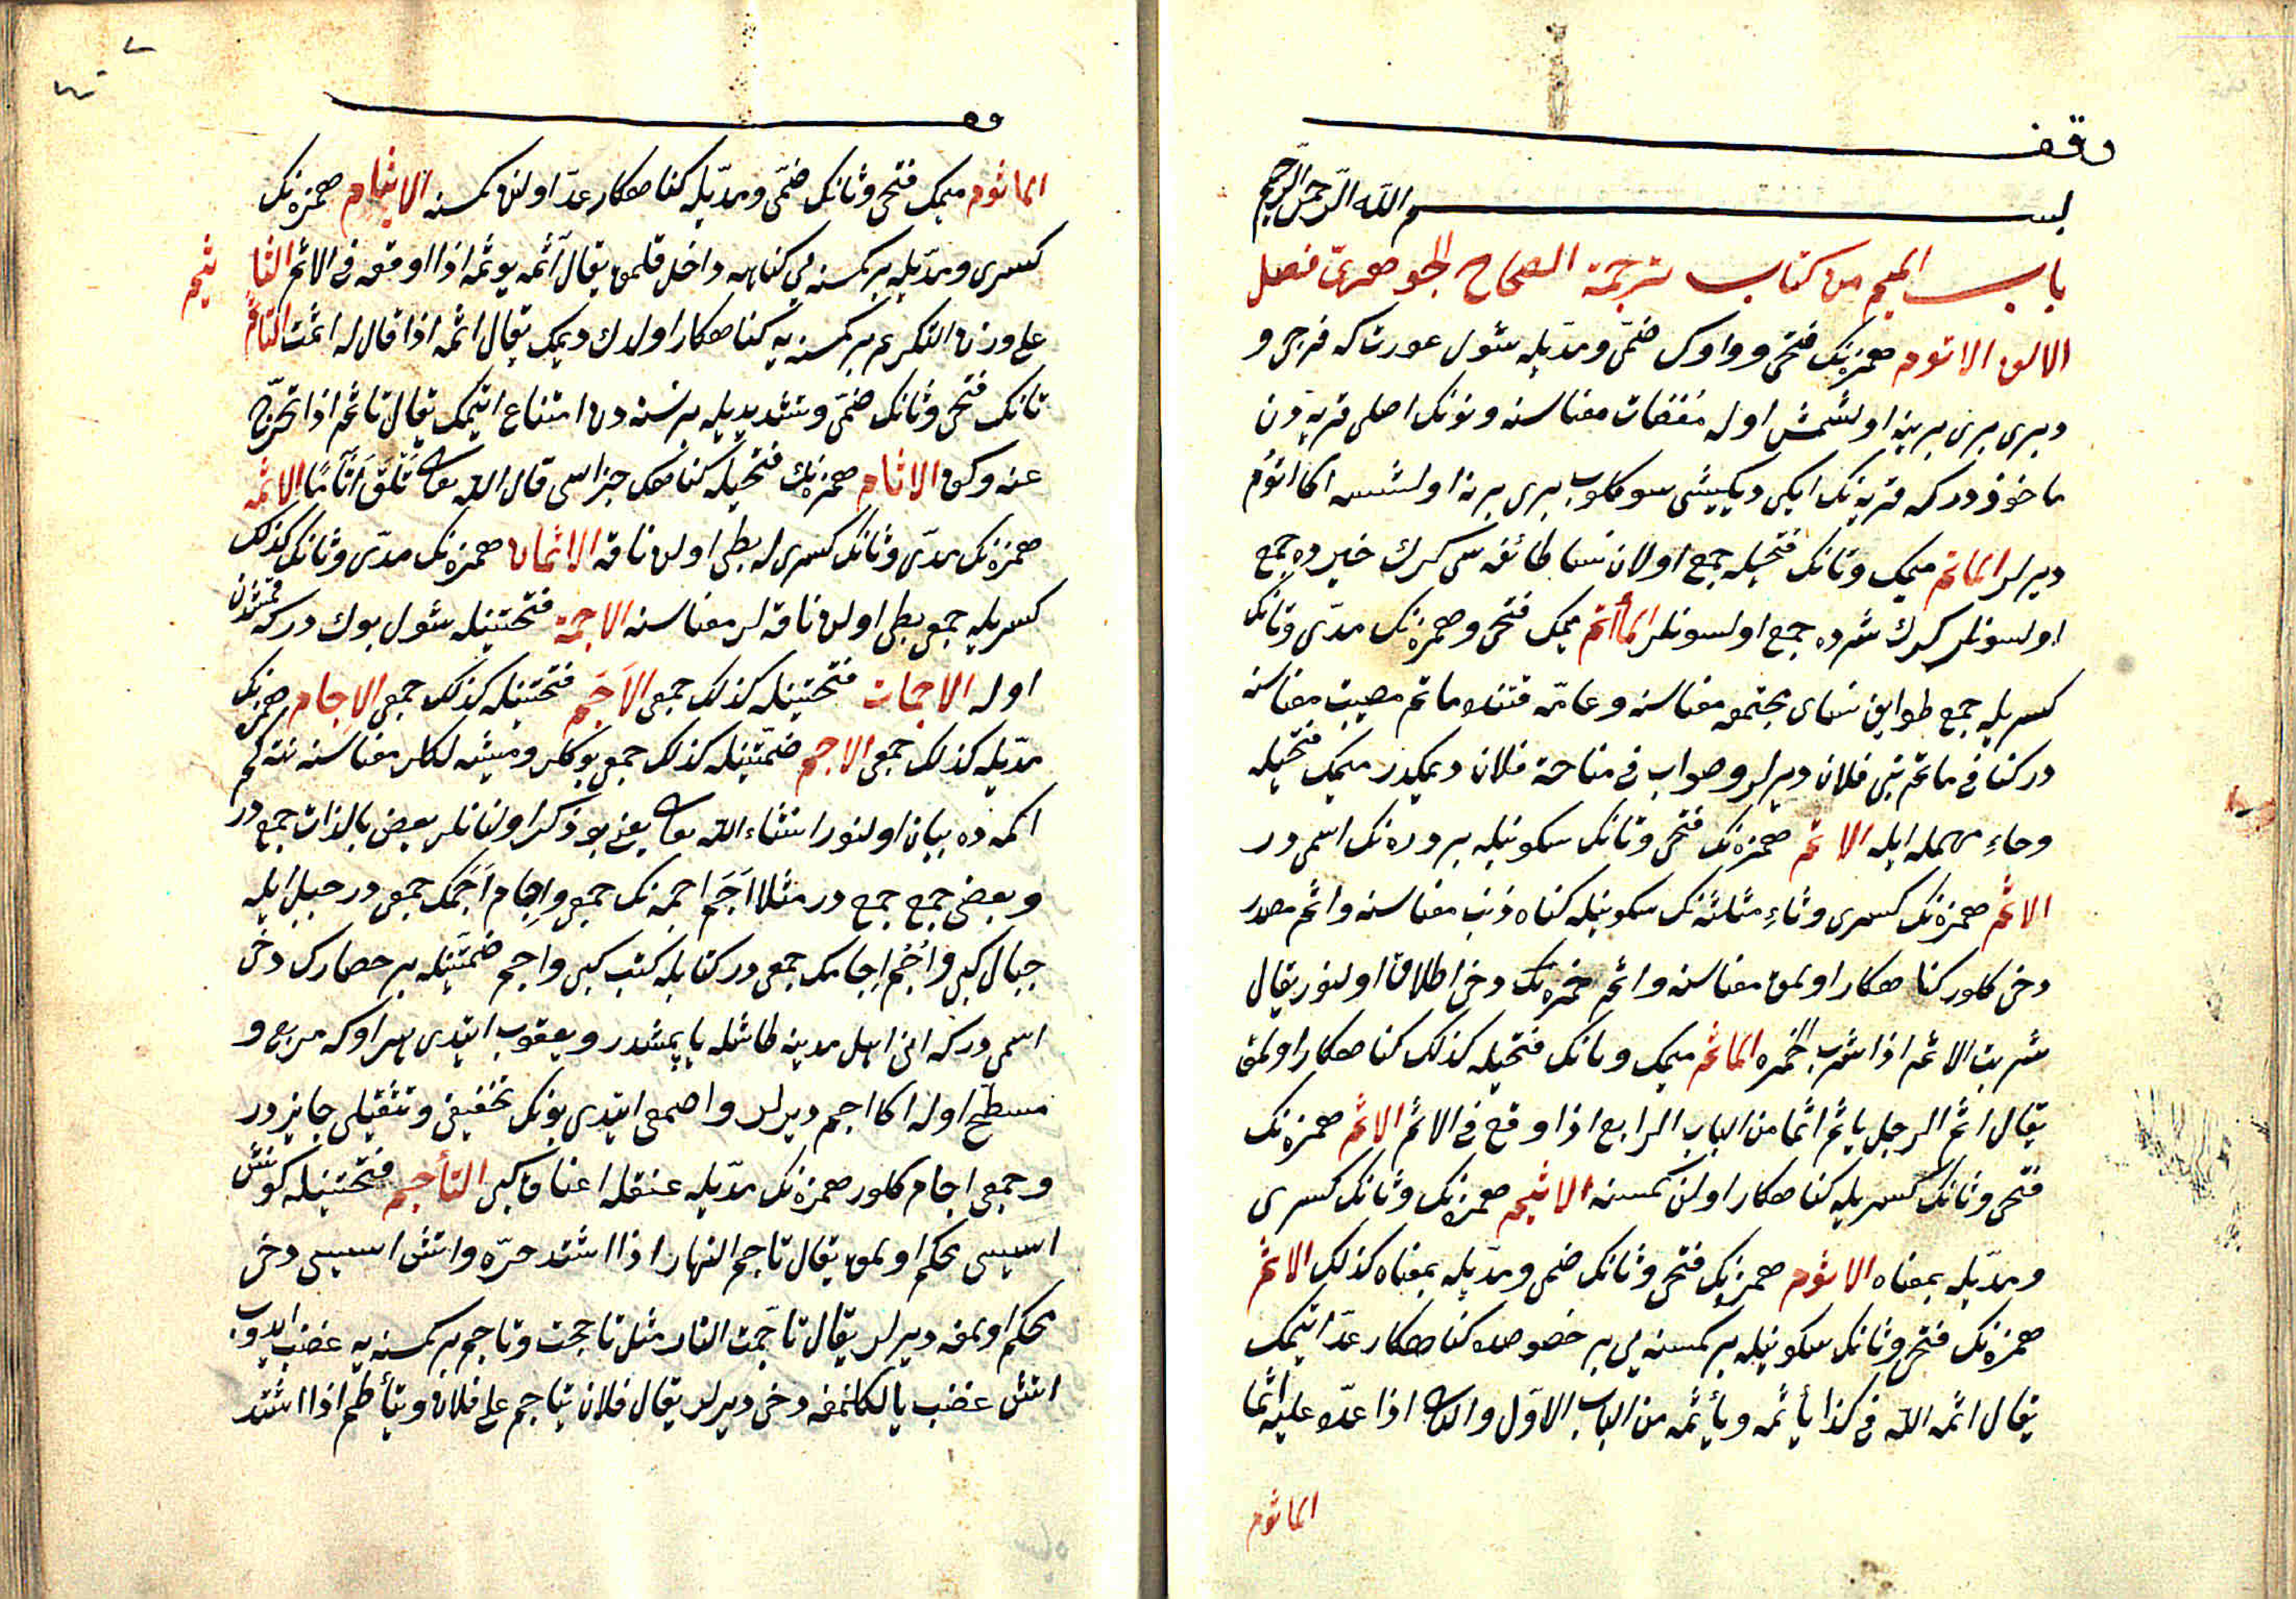 وقف
بسم الله الرحمن الرحيم
باب الميم من كتاب ترجمة الصحاح الجوهريّ فصل
الالف الاتوم همزنك فتحى وواوك ضمّى ومدّيله شول عورتاكه فرجى و
دبرى برى برينه اولشمش اوله مفضات معناسنه ونونك اصلى قربه دن
ماخوذدركه قربه نك ايكى ديكيشى سوكلوب برى برنه اولشسه اكا اتوم
ديرلر الماتم ميمك وتانك فتحيله جمع اولان نسا طائفه سى كرك خيرده جمع
اولسونلر كرك شرده جمع اولسونلر المأتم ميمك فتحى وهمزه نك مدّى وتانك
كسريله جمع طوايف نساى مجتمعه معناسنه وعامّه قتنده ماتم مصيبت معناسنه
در كنا فى ماتم بنى فلان ديرلر وصواب فى مناحة فلان ديمكدر ميمك فتحيله
وحاء مهمله ايله الاتم همزه نك فتحى وتانك سكونيله بر دره نك اسمى در
الاثم همزه نك كسرى وثاء مثلثه نك سكونيله كناه ذنب معناسنه واثم مصدر
دخى كلور كناهكار اولمق معناسنه واثم خمره نك دخى اطلاق اولنور يقال
شربت الاثم اذا شرب الخمره الماثم ميمك وثانك فتحيله كذلك كناهكار اولمق
يقال اثم الرجل ياثم اثما من الباب الرابع اذا وقع فى الاثم الاثم همزه نك
فتحى وثانك كسريله كناهكار اولن كمسنه الاثيم همزه نك وثانك كسرى
ومدّيله بمعناه الاثوم همزه نك فتحى وثانك ضمى ومدّيله بمعناه كذلك الاثم
همزه نك فتحى وثانك سكونيله بر كمسنه يى بر خصوصده كناهكار عدّ ايتمك
يقال اثمه الله فى كذا يأثمه ويأثمه من الباب الاوّل والثانى اذا عدّه عليه اثما
الماثوم
الماثوم ميمك فتحى وثانك ضمّى ومدّيله كناهكار عدّ اولنن كمسنه الايثام همزه نك
كسرى ومدّيله بر كمسنه يى كناهه داخل قلمق يقال آثمه يوثمه اذا اوقعه فى الاثم التا ثيم
على وزن التكريم بر كمسنه يه كناهكار اولدك ديمك يقال اثمه اذا قال له اثمت التاثم
تانك فتحى وثانك ضمّى وتشديديله بر نسنه دن امتناع ايتمك يقال تاثم اذا تحرّج
عنه وكف الاثام همزه نك فتحيله كناهك جزاسى قال الله تعالى يَلْقَ اَثَامًا الاثمه
همزه نك مدّى وثانك كسرى له بطى اولن ناقه الاثمات همزه نك مدّى وثانك كذلك
كسريله جمعى بطى اولن ناقه لر معناسنه الاجمة فتحتينله شول بوك دركه قمشدن
اوله الاجمات فتحتينله كذلك جمعى الاَجَم فتحتينله كذلك جمعى الاجام همزه نك
مدّيله كذلك جمعى الاجم ضمّتينله كذلك جمعى بوكلر وميشه لكلر معناسنه نته كم
اكمه ده بيان اولنور انشاء الله تعالى يعنى بو ذكر اولنانلر بعض بالذات جمع در
وبعضى جمع جمع در مثلا اَجَم اجمه نك جمعى واِجام اَجَمك جمعى در جبل ايله
جبال كبى واُجُم اِجامك جمعى در كتابله كتب كبى واجم ضمّتينله بر حصارك دخى
اسمى دركه انى اهل مدينه طاشله ياپمشدر ويعقوب ايتدى هر اوكه مربع و
مسطّح اوله اكا اجم ديرلر واصمعى ايتدى بونك تخفيفى وتثقيلى جايزدر
وجمعى اجام كلور همزه نك مدّيله عنقله اعناق كبى التأجم فتحتينله كونش
اسيسى محكم اولمق يقال تاجم النهار اذا اشتد حرّه واتش اسيسى دخى
محكم اولمغه ديرلر يقال تاجّمت النار مثل تاججت وتاجم بر كمسنه يه غضب ايدوب
اتش غضب يالكلنمغه دخى ديرلر يقال فلان يتاجم على فلان ويتأطم اذا اشتد